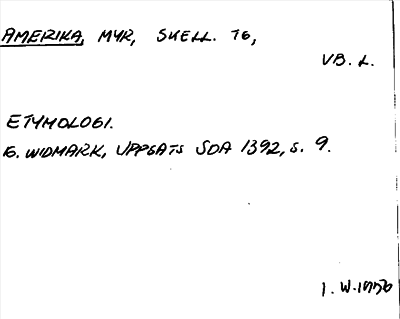 AMERIKA, MYR, SKELL. TG,
VB. L.
ETYMOLOGI.
G. WIDMARK, UPPSATS SDA 1392, S. 9.
I. W. 1950